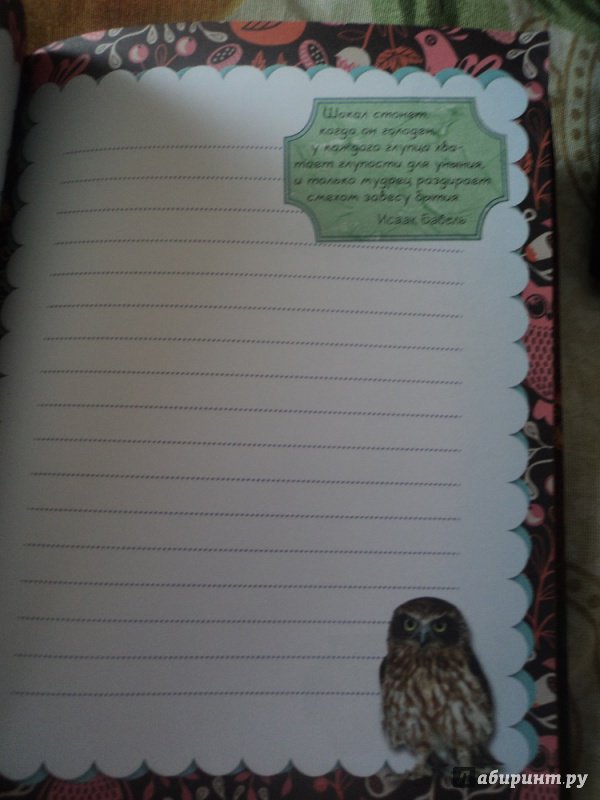 Шакал стонет,
когда он голоден,
у каждого глупца хва-
тает глупости для уныния,
и только мудрец раздирает
смехом завесу бытия
Исаак Бабель
Лабиринт.ру